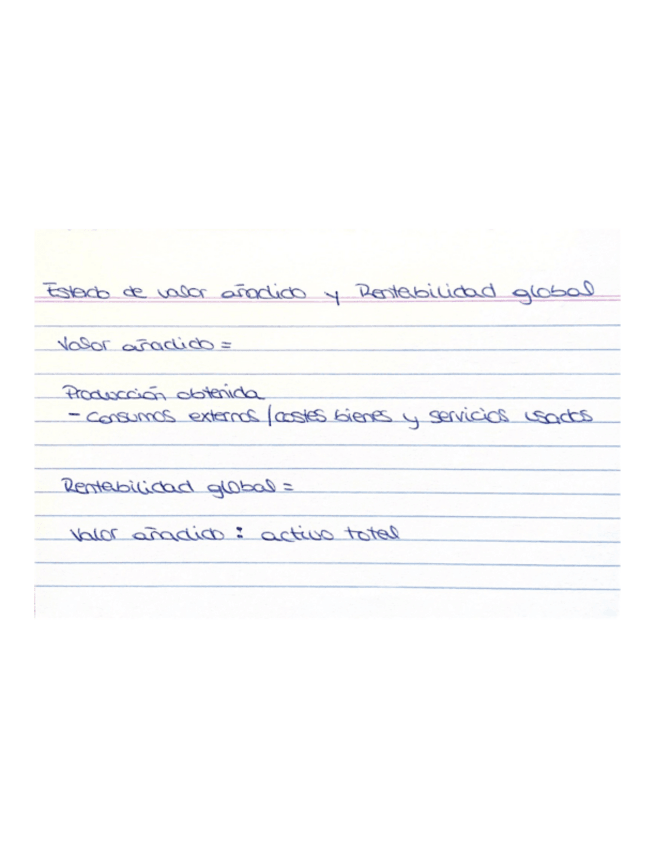 Estado de valor añadido y Rentabilidad global
Valor añadido =
Producción obtenida
- Consumos externos / costes bienes y servicios usados
Rentabilidad global =
Valor añadido : activo total